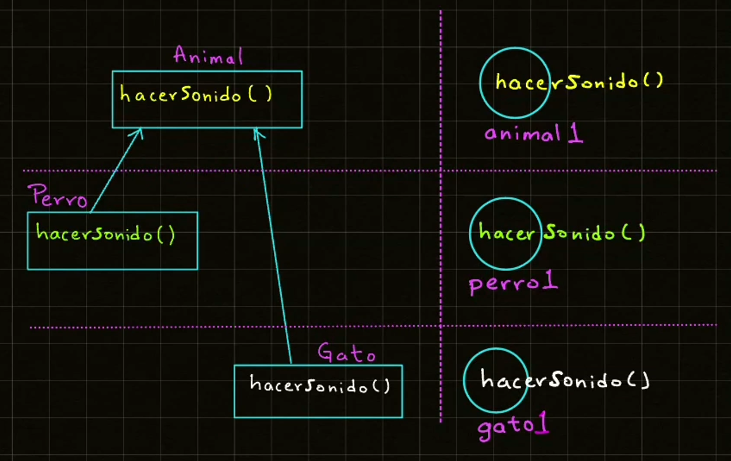 Animal
hacerSonido()
Perro
hacerSonido()
Gato
hacerSonido()
hacerSonido()
animal1
hacerSonido()
perro1
hacerSonido()
gato1